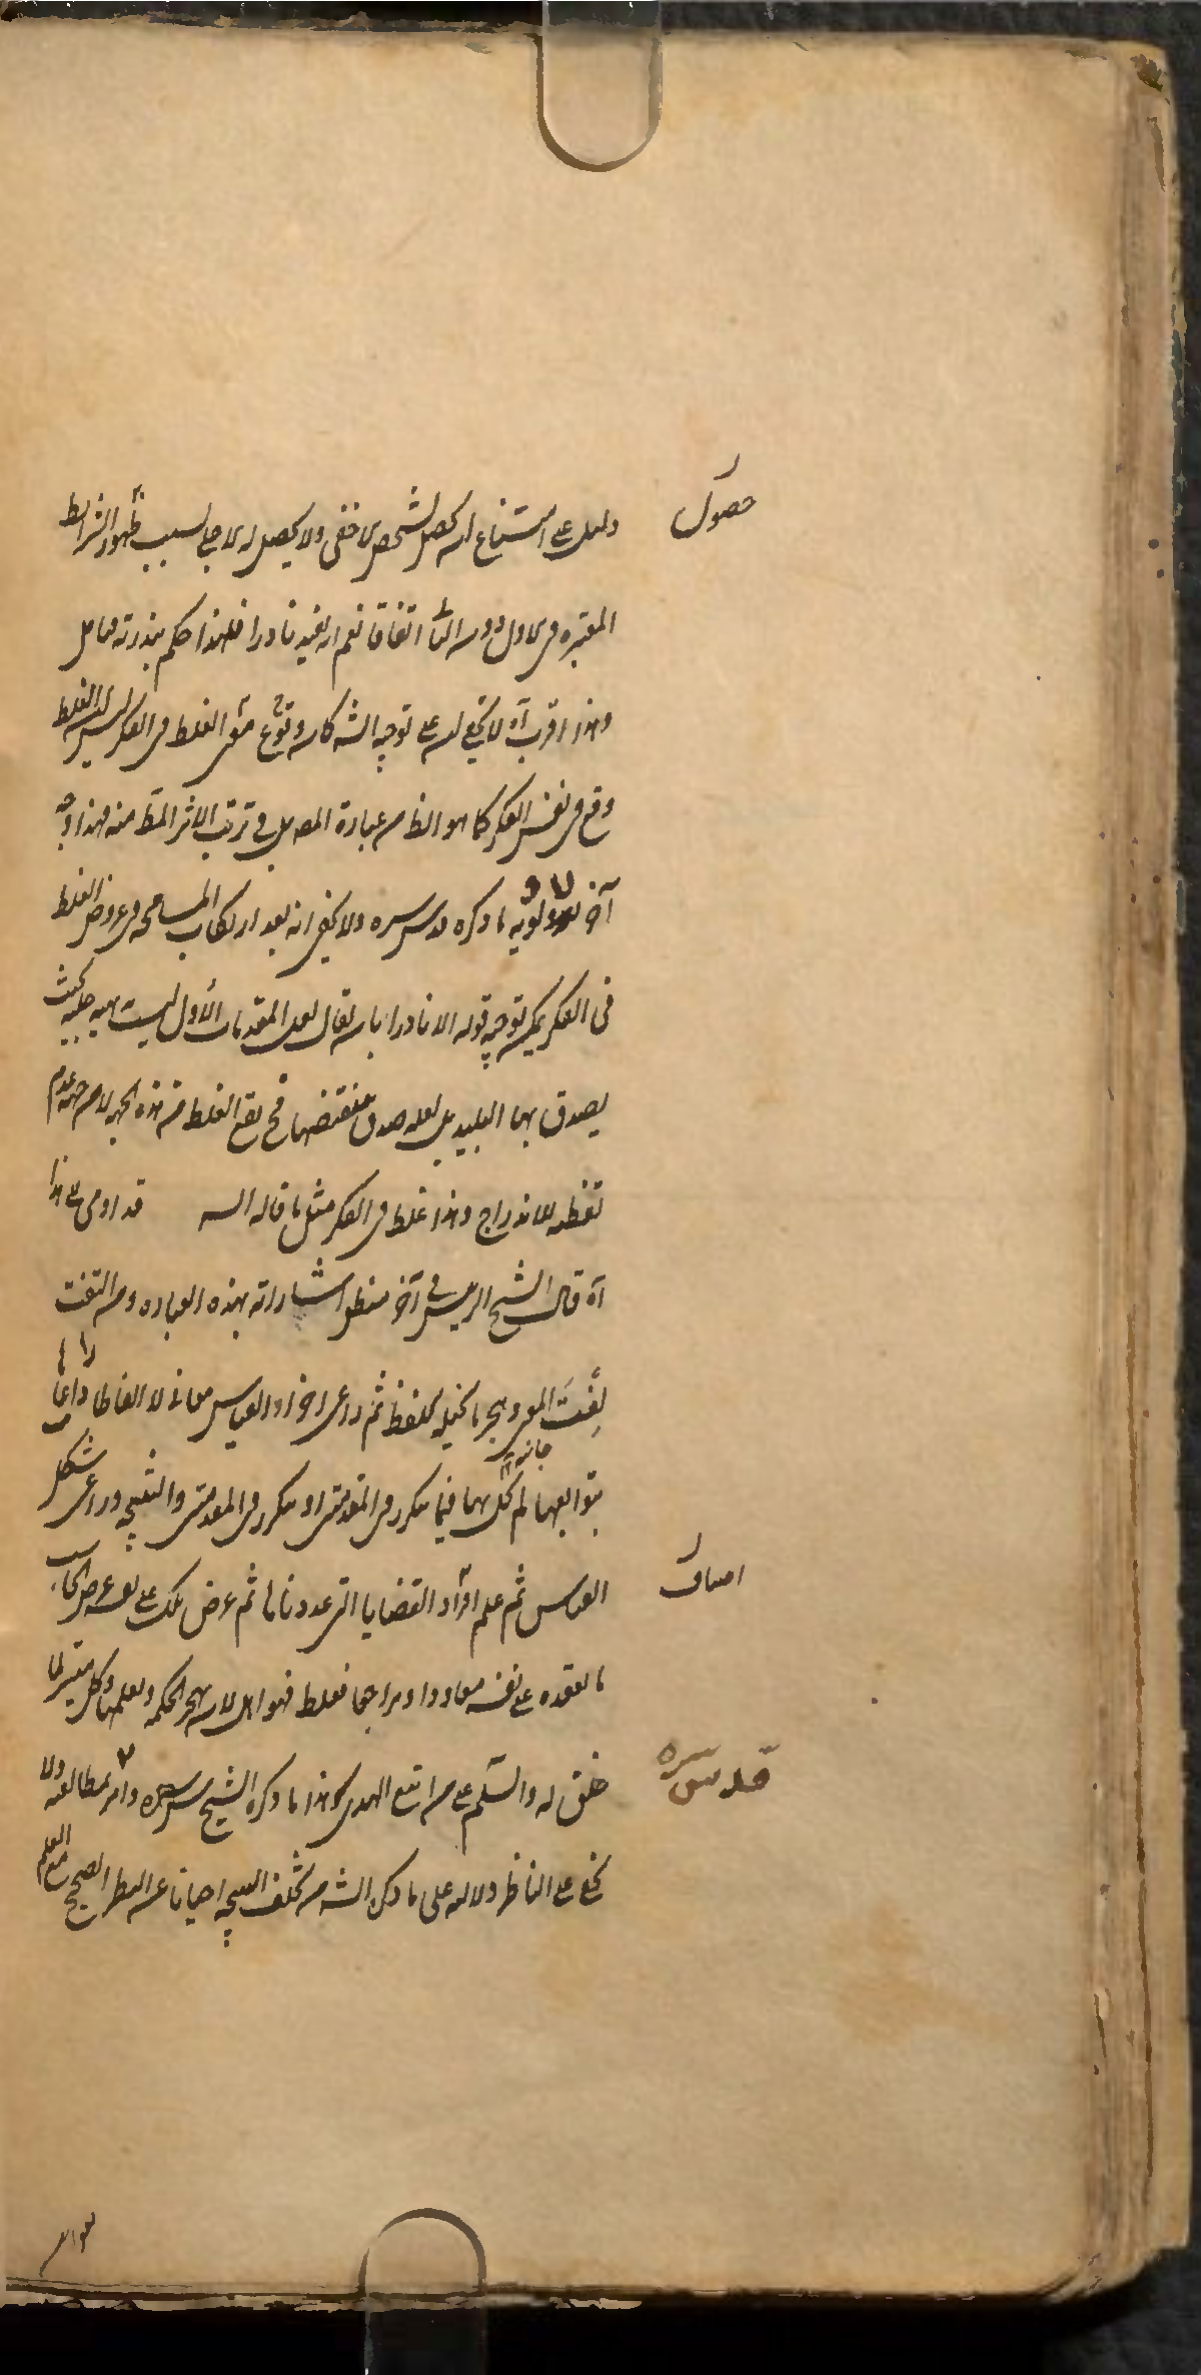 حصول
دليل على امتناع انه يحصل لشخص لاخفى ولا يحصل له لاجلى بسبب ظهور الشرائط
المعتبرة في الاول دون الثانى اتفاقا نعم انه بعيد نادرا فلهذا حكم بندرته فتأمل
وهذا اقرب آه لا يخفى انه على توجيه الش كان وقوع معنى الغلط في الفكر ليس ان الغلط
وقع في نفس الفكر كما هو الظ من عبارة المص بل في ترتب الاثر المتط منه فهذا وجه
آخر لاولوية ما ذكره قدس سره ولا يخفى انه بعد ارتكاب المسامحة في عروض الغلط
في الفكر يمكن توجيه قوله الا نادرا بان يقال لعل المقدمات الأول ليست بينة جلية بحيث
يصدق بها البليد بل لعله صدق بنقيضها فح يقع الغلط من هذه الجهة لا من جهة عدم
تفطنه للاندراج وهذا غلط في الفكر مثل ما قاله الس قد اومى على هذا
آه قال الشيخ الرئيس في آخر منطق اشاراته بهذه العبارة ومن التفت
لِفْتَ المعنى وهجر ما يخيله اللفظ ثم راعى اجزاء القياس معانى لا الفاظا راعاها
بتوابعها لم يخل بها فيما يتكرر في المقدمتين او يتكرر في المقدمتين والنتيجة وراعى شكل
القياس ثم علم اصناف القضايا التى عددناها ثم عرض ذلك على نفسه عرض الحاسب
ما يعقده على نفسه معاودا ومراجعا فغلط فهو اهل لان يهجر الحكمة وتعلمها وكل ميسر لما
خلق له والسلم على من اتبع الهدى هذا ما ذكره الشيخ قدس سره وامر بمطالعته ولا
يخفى على الناظر دلالته على ما ذكره الش من تخلف النتيجة احيانا عن النظر الصحيح مع العلم